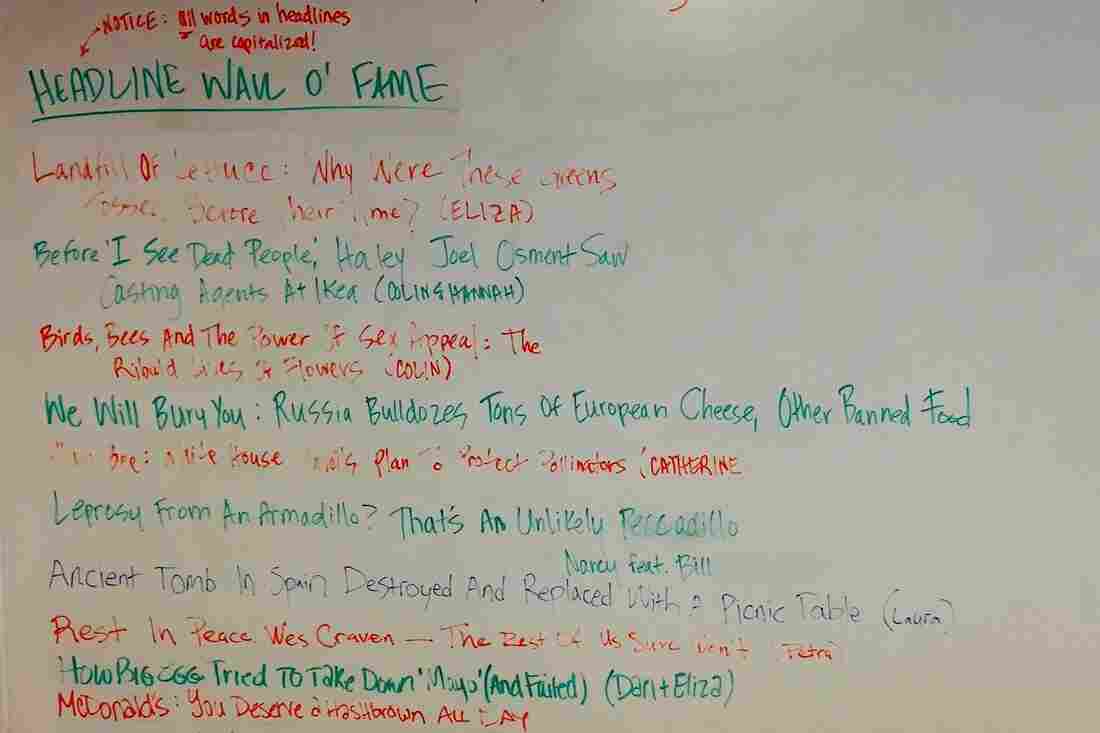 NOTICE: all words in headlines
are capitalized!
HEADLINE WALL O' FAME
Landfill Of Lettuce: Why Were These Greens
Tossed Before Their Time? (ELIZA)
Before 'I See Dead People,' Haley Joel Osment Saw
Casting Agents At Ikea (COLIN & HANNAH)
Birds, Bees And The Power Of Sex Appeal: The
Ribald Lives Of Flowers (COLIN)
We Will Bury You: Russia Bulldozes Tons Of European Cheese, Other Banned Food
House Plan To Protect Pollinators (CATHERINE
Leprosy From An Armadillo? That's An Unlikely Peccadillo
Nancy feat. Bill
Ancient Tomb In Spain Destroyed And Replaced With a Picnic Table (Laura)
Rest In Peace Wes Craven — The Rest Of Us Sure Won't Petra
How BIG EGG Tried To Take Down 'Mayo' (And Failed) (Dan + Eliza)
McDonald's: You Deserve a Hashbrown All DAY